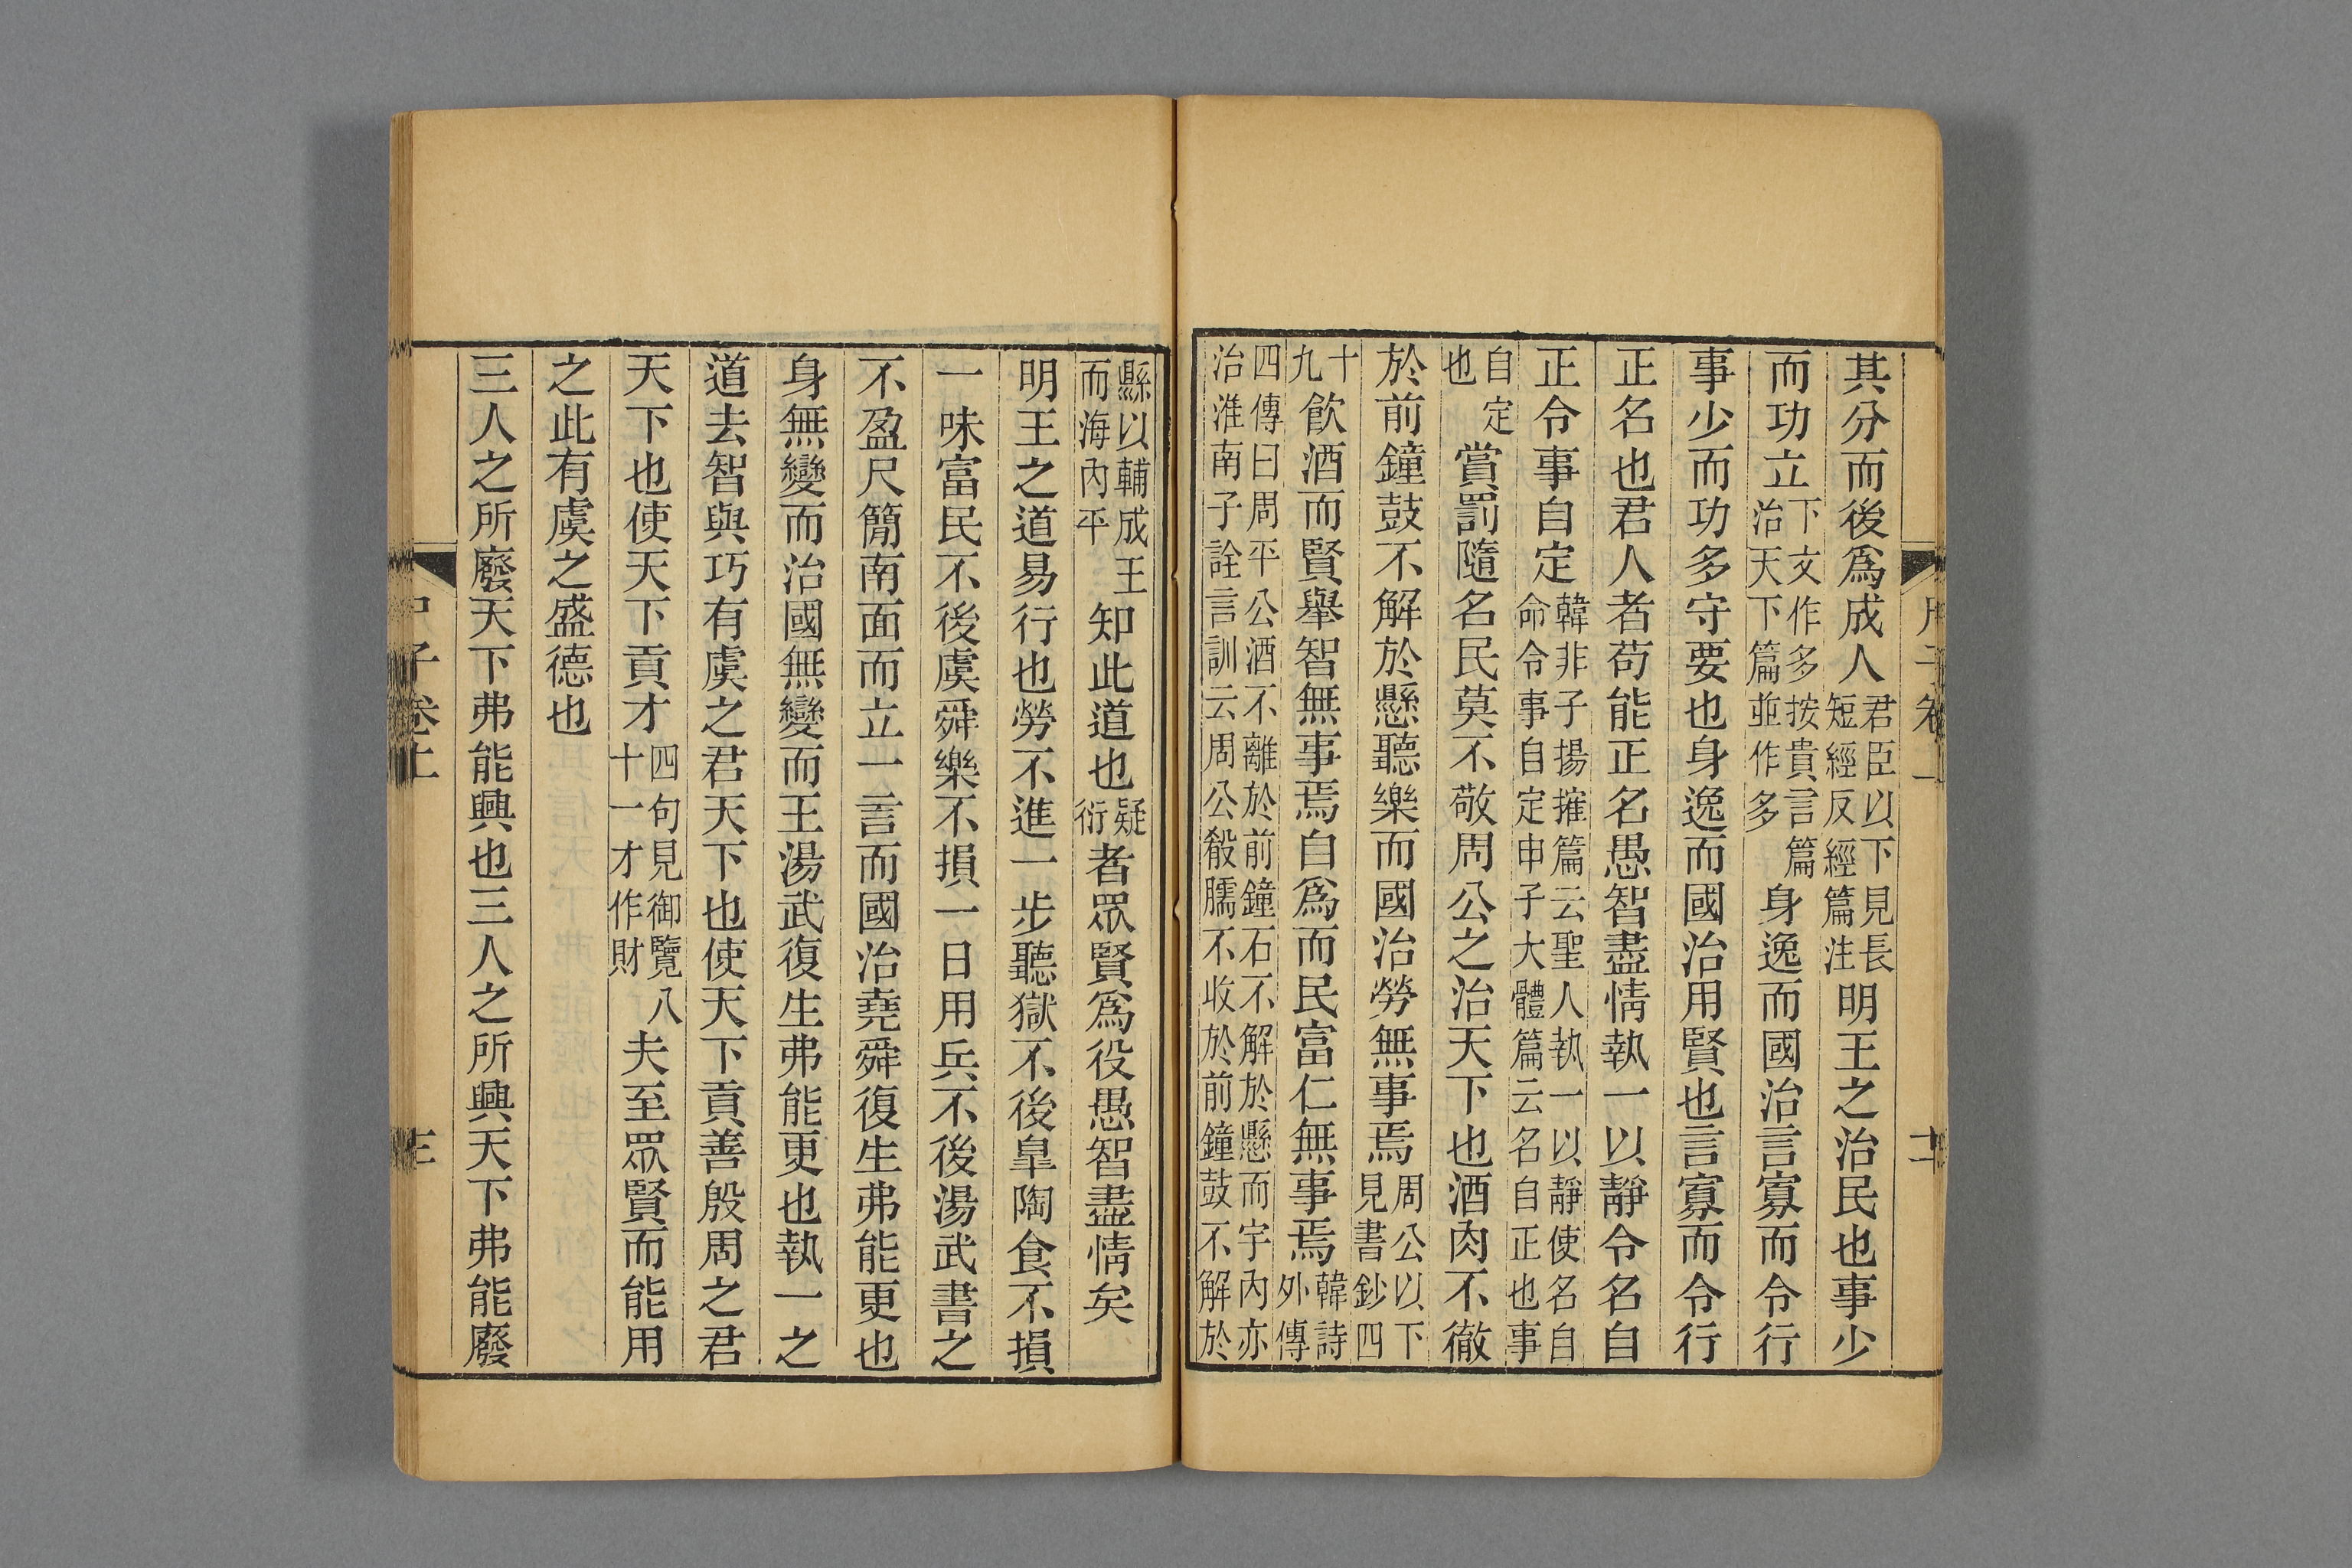 其分而後爲成人君臣以下見長短經反經篇注明王之治民也事少
而功立下文作多按貴言篇治天下篇並作多身逸而國治言寡而令行
事少而功多守要也身逸而國治用賢也言寡而令行
正名也君人者苟能正名愚智盡情執一以靜令名自
正令事自定韓非子揚搉篇云聖人執一以靜使名自命令事自定申子大體篇云名自正也事
自定也賞罰隨名民莫不敬周公之治天下也酒肉不徹
於前鐘鼓不解於懸聽樂而國治勞無事焉周公以下見書鈔四
十九飮酒而賢舉智無事焉自爲而民富仁無事焉韓詩外傳
四傳曰周平公酒不離於前鐘石不解於懸而宇內亦治淮南子詮言訓云周公殽臑不收於前鐘鼓不解於
懸以輔成王而海內平知此道也疑衍者眾賢爲役愚智盡情矣
明王之道易行也勞不進一步聽獄不後臯陶食不損
一味富民不後虞舜樂不損一日用兵不後湯武書之
不盈尺簡南面而立一言而國治堯舜復生弗能更也
身無變而治國無變而王湯武復生弗能更也執一之
道去智與巧有虞之君天下也使天下貢善殷周之君
天下也使天下貢才四句見御覽八十一才作財夫至眾賢而能用
之此有虞之盛德也
三人之所廢天下弗能興也三人之所興天下弗能廢
子卷上